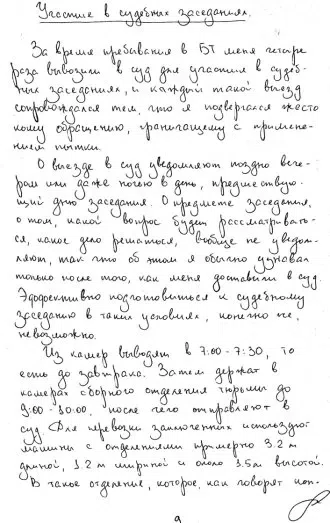 Участие в судебных заседаниях.
За время пребывания в БТ меня четыре
раза вывозили в суд для участия в судеб-
ных заседаниях, и каждый такой выезд
сопровождался тем, что я подвергался жесто
кому обращению, граничащему с примене-
нием пытки.
О выезде в суд уведомляют поздно вече-
ром или даже ночью в день, предшествую-
щий дню заседания. О предмете заседания,
о том, какой вопрос будет рассматривать-
ся, какое дело решаться, вообще не уведом-
ляют, так что об этом я обычно узнавал
только после того, как меня доставили в суд.
Эффективно подготовиться к судебному
заседанию в таких условиях, конечно же,
невозможно.
Из камер выводят в 7:00-7:30, то
есть до завтрака. Затем держат в
камерах сборного отделения тюрьмы до
9:00-10:00, после чего отправляют в
суд. Для перевозки заключенных используют
машины с отделениями примерно 3.2 м
длиной, 1.2 м шириной и около 1.5м высотой.
В такое отделение, которое, как говорят кон-
9